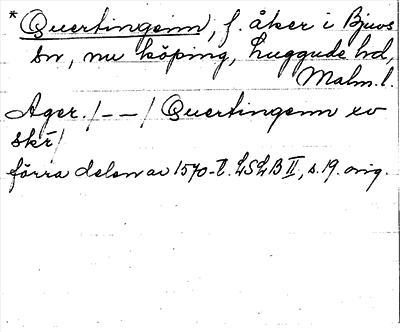 * Quertingenn, f. åker i Bjuvs
sn, nu köping, Luggude hd,
Malm. l.
Ager. /--/ Quertingenn xv
skr/
förra delen av 1570-t. LSLB II, s. 19. orig.